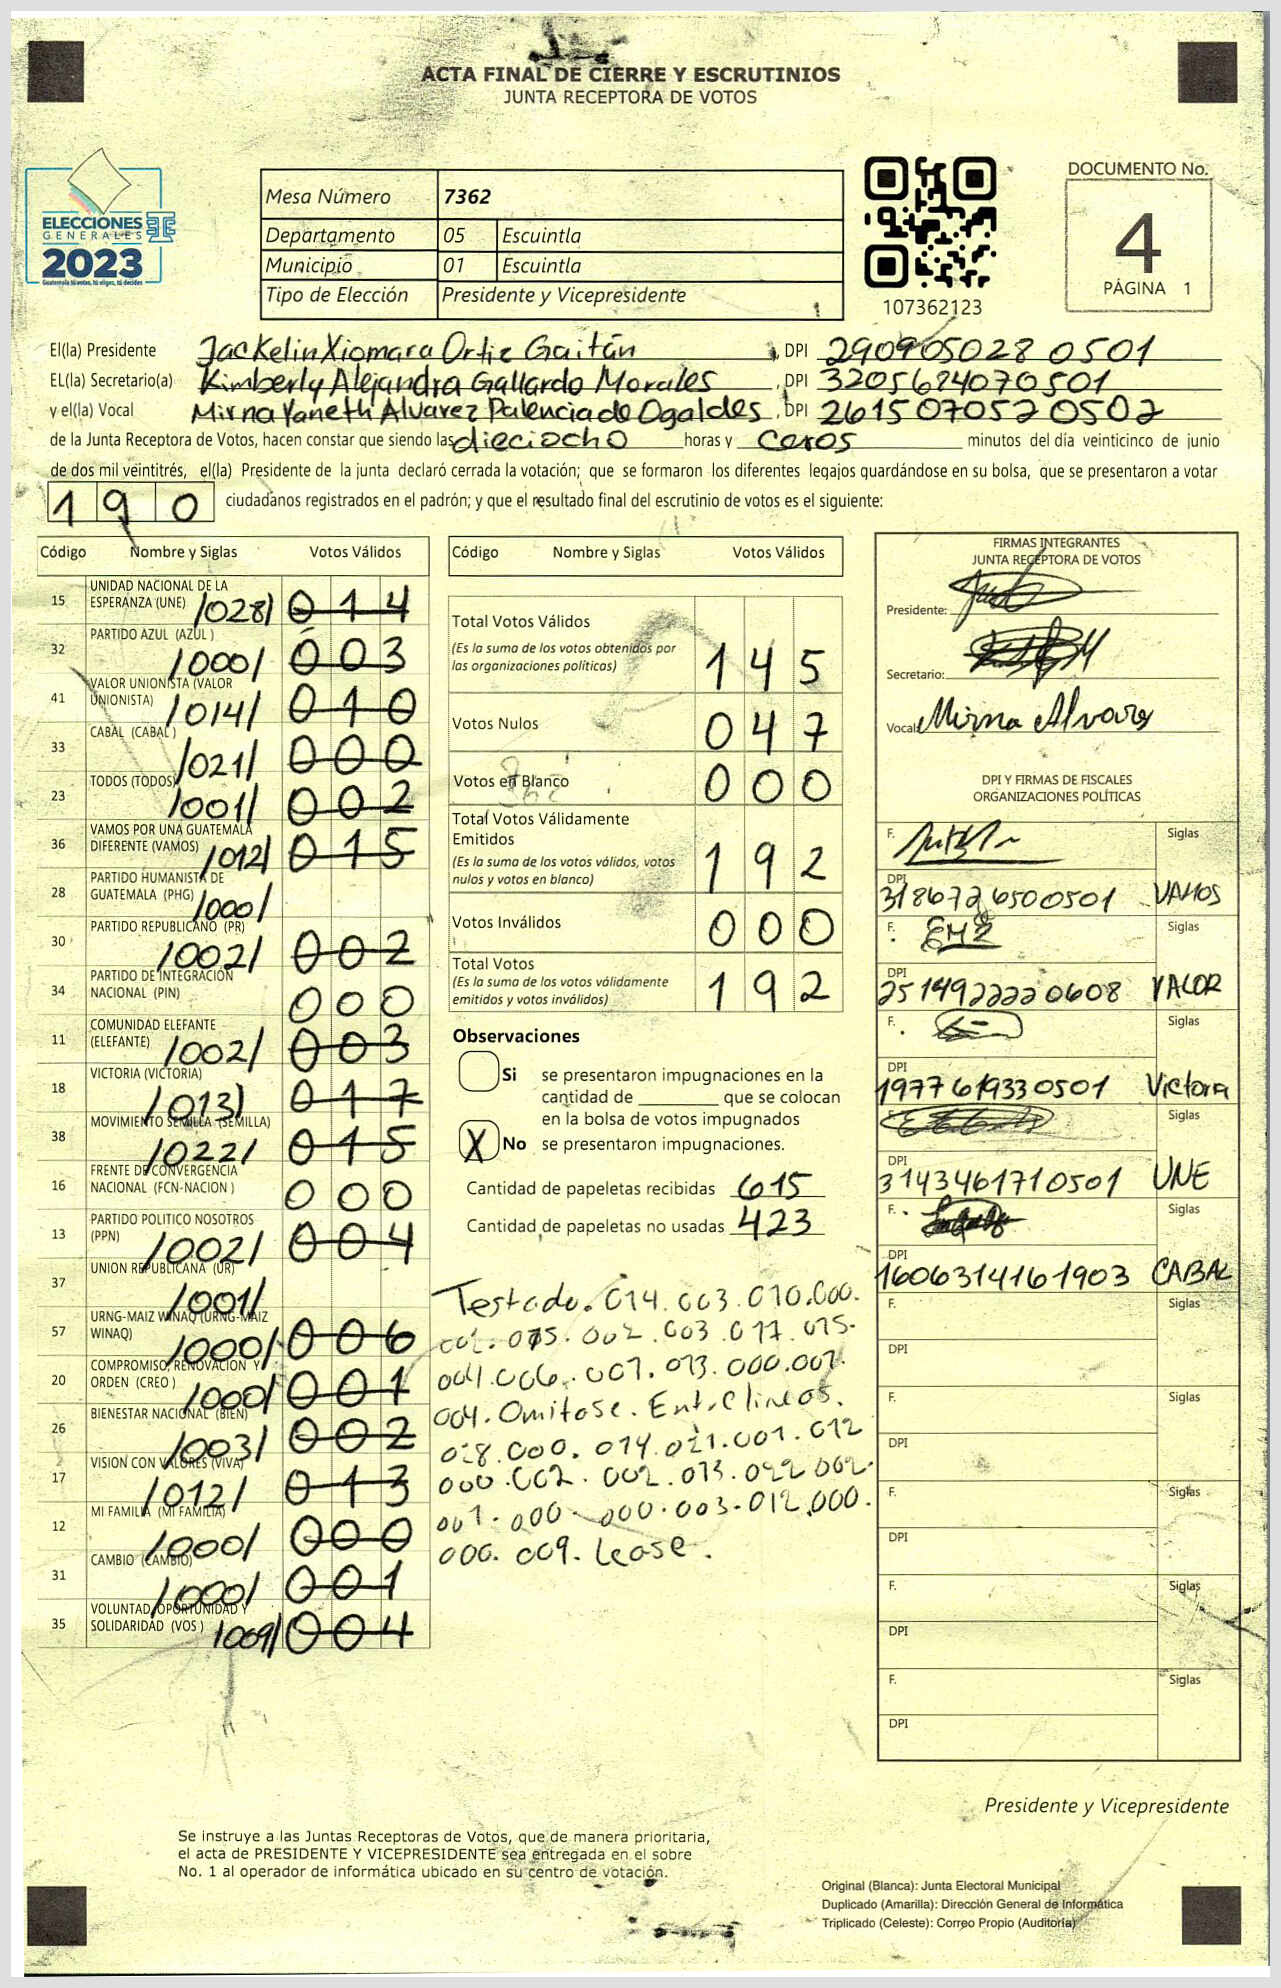 ACTA FINAL DE CIERRE Y ESCRUTINIOS
JUNTA RECEPTORA DE VOTOS
ELECCIONES
GENERALES
2023
Guatemala tú votas, tú eliges, tú decides
Mesa Número 7362
Departamento 05 Escuintla
Municipio 01 Escuintla
Tipo de Elección Presidente y Vicepresidente
107362123
DOCUMENTO No.
4
PÁGINA 1
El(la) Presidente Jackelin Xiomara Ortiz Gaitán, DPI 290905028 0501
EL(la) Secretario(a) Kimberly Alejandra Gallardo Morales, DPI 3205684070501
y el(la) Vocal Mirna Yaneth Alvarez Palencia de Ogaldes, DPI 261507052 0502
de la Junta Receptora de Votos, hacen constar que siendo las dieciocho horas y ceros minutos del día veinticinco de junio
de dos mil veintitrés, el(la) Presidente de la junta declaró cerrada la votación; que se formaron los diferentes legajos guardándose en su bolsa, que se presentaron a votar
190 ciudadanos registrados en el padrón; y que el resultado final del escrutinio de votos es el siguiente:
Código Nombre y Siglas Votos Válidos
15 UNIDAD NACIONAL DE LA
ESPERANZA (UNE) /028/ 014
32 PARTIDO AZUL (AZUL ) /000/ 003
41 VALOR UNIONISTA (VALOR
UNIONISTA) /014/ 010
33 CABAL (CABAL ) /021/ 000
23 TODOS (TODOS) /001/ 002
36 VAMOS POR UNA GUATEMALA
DIFERENTE (VAMOS) /012/ 015
28 PARTIDO HUMANISTA DE
GUATEMALA (PHG) /000/
30 PARTIDO REPUBLICANO (PR) /002/ 002
34 PARTIDO DE INTEGRACIÓN
NACIONAL (PIN) 000
11 COMUNIDAD ELEFANTE
(ELEFANTE) /002/ 003
18 VICTORIA (VICTORIA) /013/ 017
38 MOVIMIENTO SEMILLA (SEMILLA) /022/ 015
16 FRENTE DE CONVERGENCIA
NACIONAL (FCN-NACION ) 000
13 PARTIDO POLITICO NOSOTROS
(PPN) /002/ 004
37 UNION REPUBLICANA (UR) /001/
57 URNG-MAIZ WINAQ (URNG-MAIZ
WINAQ) /000/ 006
20 COMPROMISO, RENOVACION Y
ORDEN (CREO ) /000/ 001
26 BIENESTAR NACIONAL (BIEN) /003/ 002
17 VISION CON VALORES (VIVA) /012/ 013
12 MI FAMILIA (MI FAMILIA) /000/ 000
31 CAMBIO (CAMBIO) /000/ 001
35 VOLUNTAD, OPORTUNIDAD Y
SOLIDARIDAD (VOS ) /009/ 004
Código Nombre y Siglas Votos Válidos
Total Votos Válidos
(Es la suma de los votos obtenidos por
las organizaciones políticas) 145
Votos Nulos 047
Votos en Blanco 000
Total Votos Válidamente
Emitidos
(Es la suma de los votos válidos, votos
nulos y votos en blanco) 192
Votos Inválidos 000
Total Votos
(Es la suma de los votos válidamente
emitidos y votos inválidos) 192
Observaciones
Si se presentaron impugnaciones en la
cantidad de ________ que se colocan
en la bolsa de votos impugnados
X No se presentaron impugnaciones.
Cantidad de papeletas recibidas 615
Cantidad de papeletas no usadas 423
Testado. 014.003.010.000.
002.015.002.003.017.015.
004.006.001.013.000.001.
004. Omitase. Entrelineas.
028.000.014.021.001.012
000.002.002.013.022.002.
001.000.000.003.012.000.
000.009. Lease.
FIRMAS INTEGRANTES
JUNTA RECEPTORA DE VOTOS
Presidente:
Secretario:
Vocal: Mirna Alvarez
DPI Y FIRMAS DE FISCALES
ORGANIZACIONES POLÍTICAS
F. Siglas
DPI 3186726500501 VAMOS
F. Siglas
DPI 2514922220608 VALOR
F. Siglas
DPI 1977619330501 Victoria
F. Siglas
DPI 3143461710501 UNE
F. Siglas
DPI 1606314161903 CABAL
F. Siglas
DPI
F. Siglas
DPI
F. Siglas
DPI
F. Siglas
DPI
F. Siglas
DPI
Presidente y Vicepresidente
Se instruye a las Juntas Receptoras de Votos, que de manera prioritaria,
el acta de PRESIDENTE Y VICEPRESIDENTE sea entregada en el sobre
No. 1 al operador de informática ubicado en su centro de votación.
Original (Blanca): Junta Electoral Municipal
Duplicado (Amarilla): Dirección General de Informática
Triplicado (Celeste): Correo Propio (Auditoría)